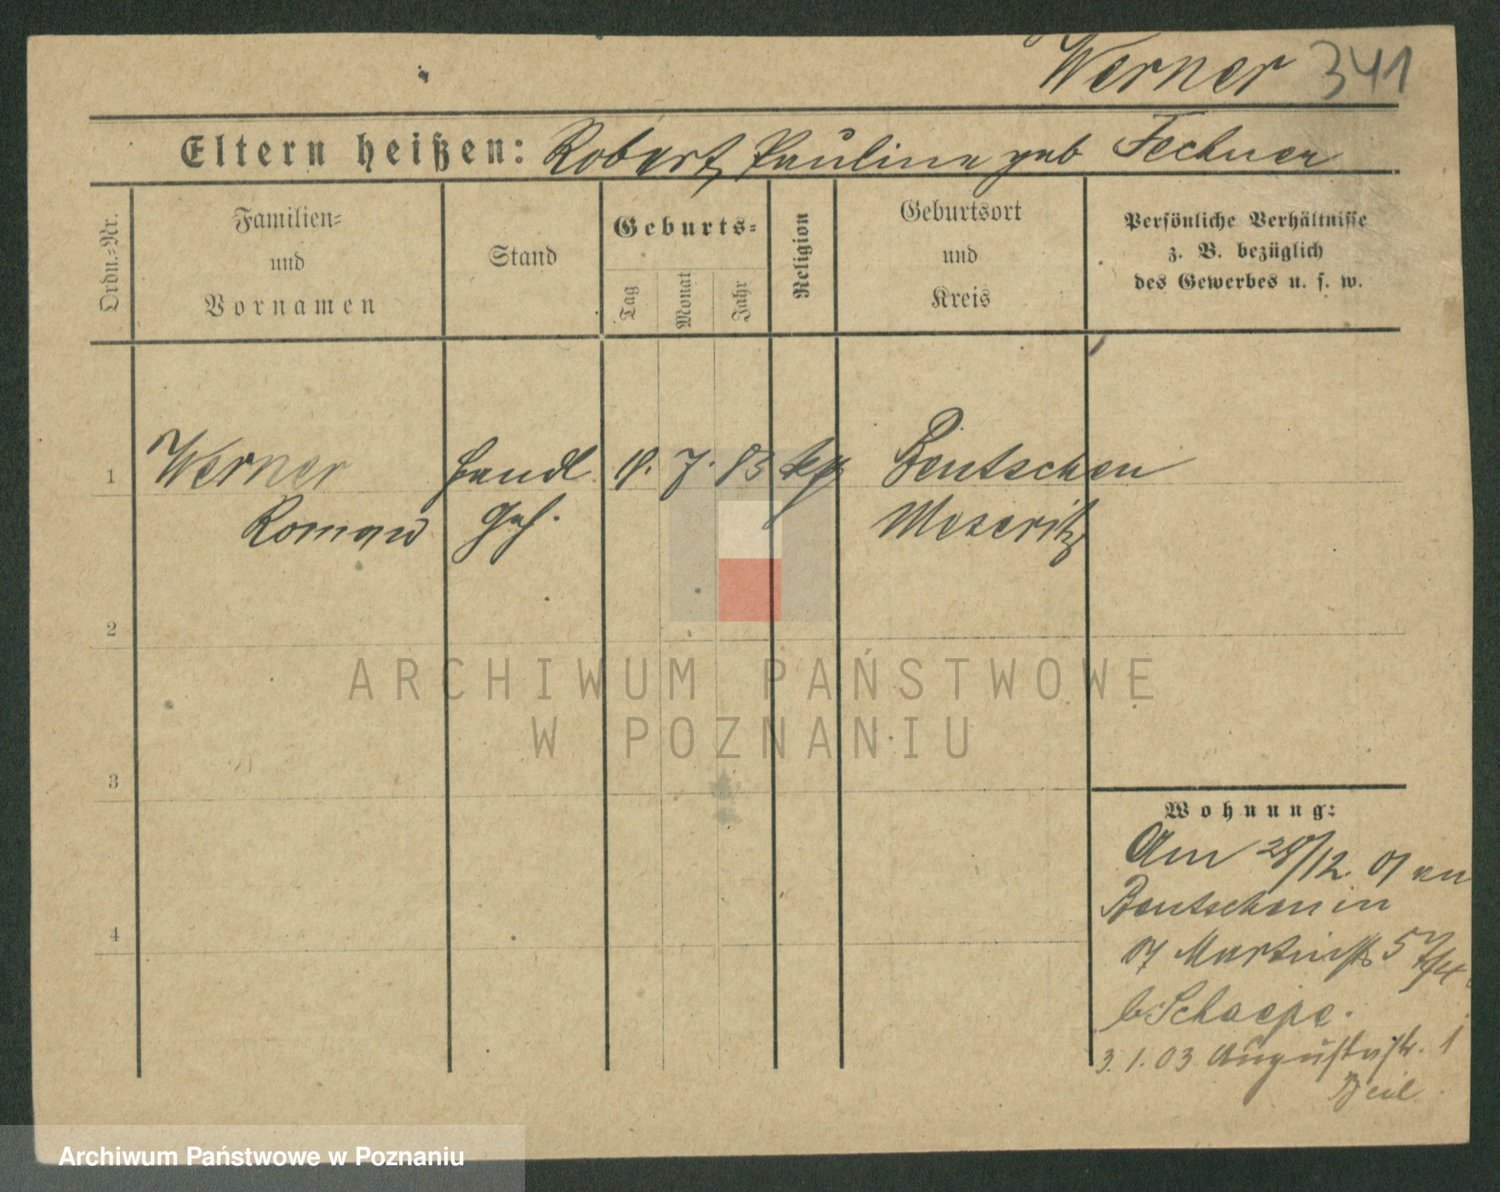 Werner 341
Eltern heißen: Robert, Pauline geb Fechner
Ordn.-Nr.
Familien-
und
Vornamen
Stand
Geburts-
Tag
Monat
Jahr
Religion
Geburtsort
und
Kreis
Persönliche Verhältnisse
z. B. bezüglich
des Gewerbes u. s. w.
1 Werner Handl. 7. 83 Bentschen
Roman Geh. Meseritz
2
ARCHIWUM PAŃSTWOWE
W POZNANIU
3
4
Wohnung:
Am 28/12 01 an
Bentschen in
Martinstr 57
b. Schaepe.
3. 1. 03 Augustastr. 1
Archiwum Państwowe w Poznaniu